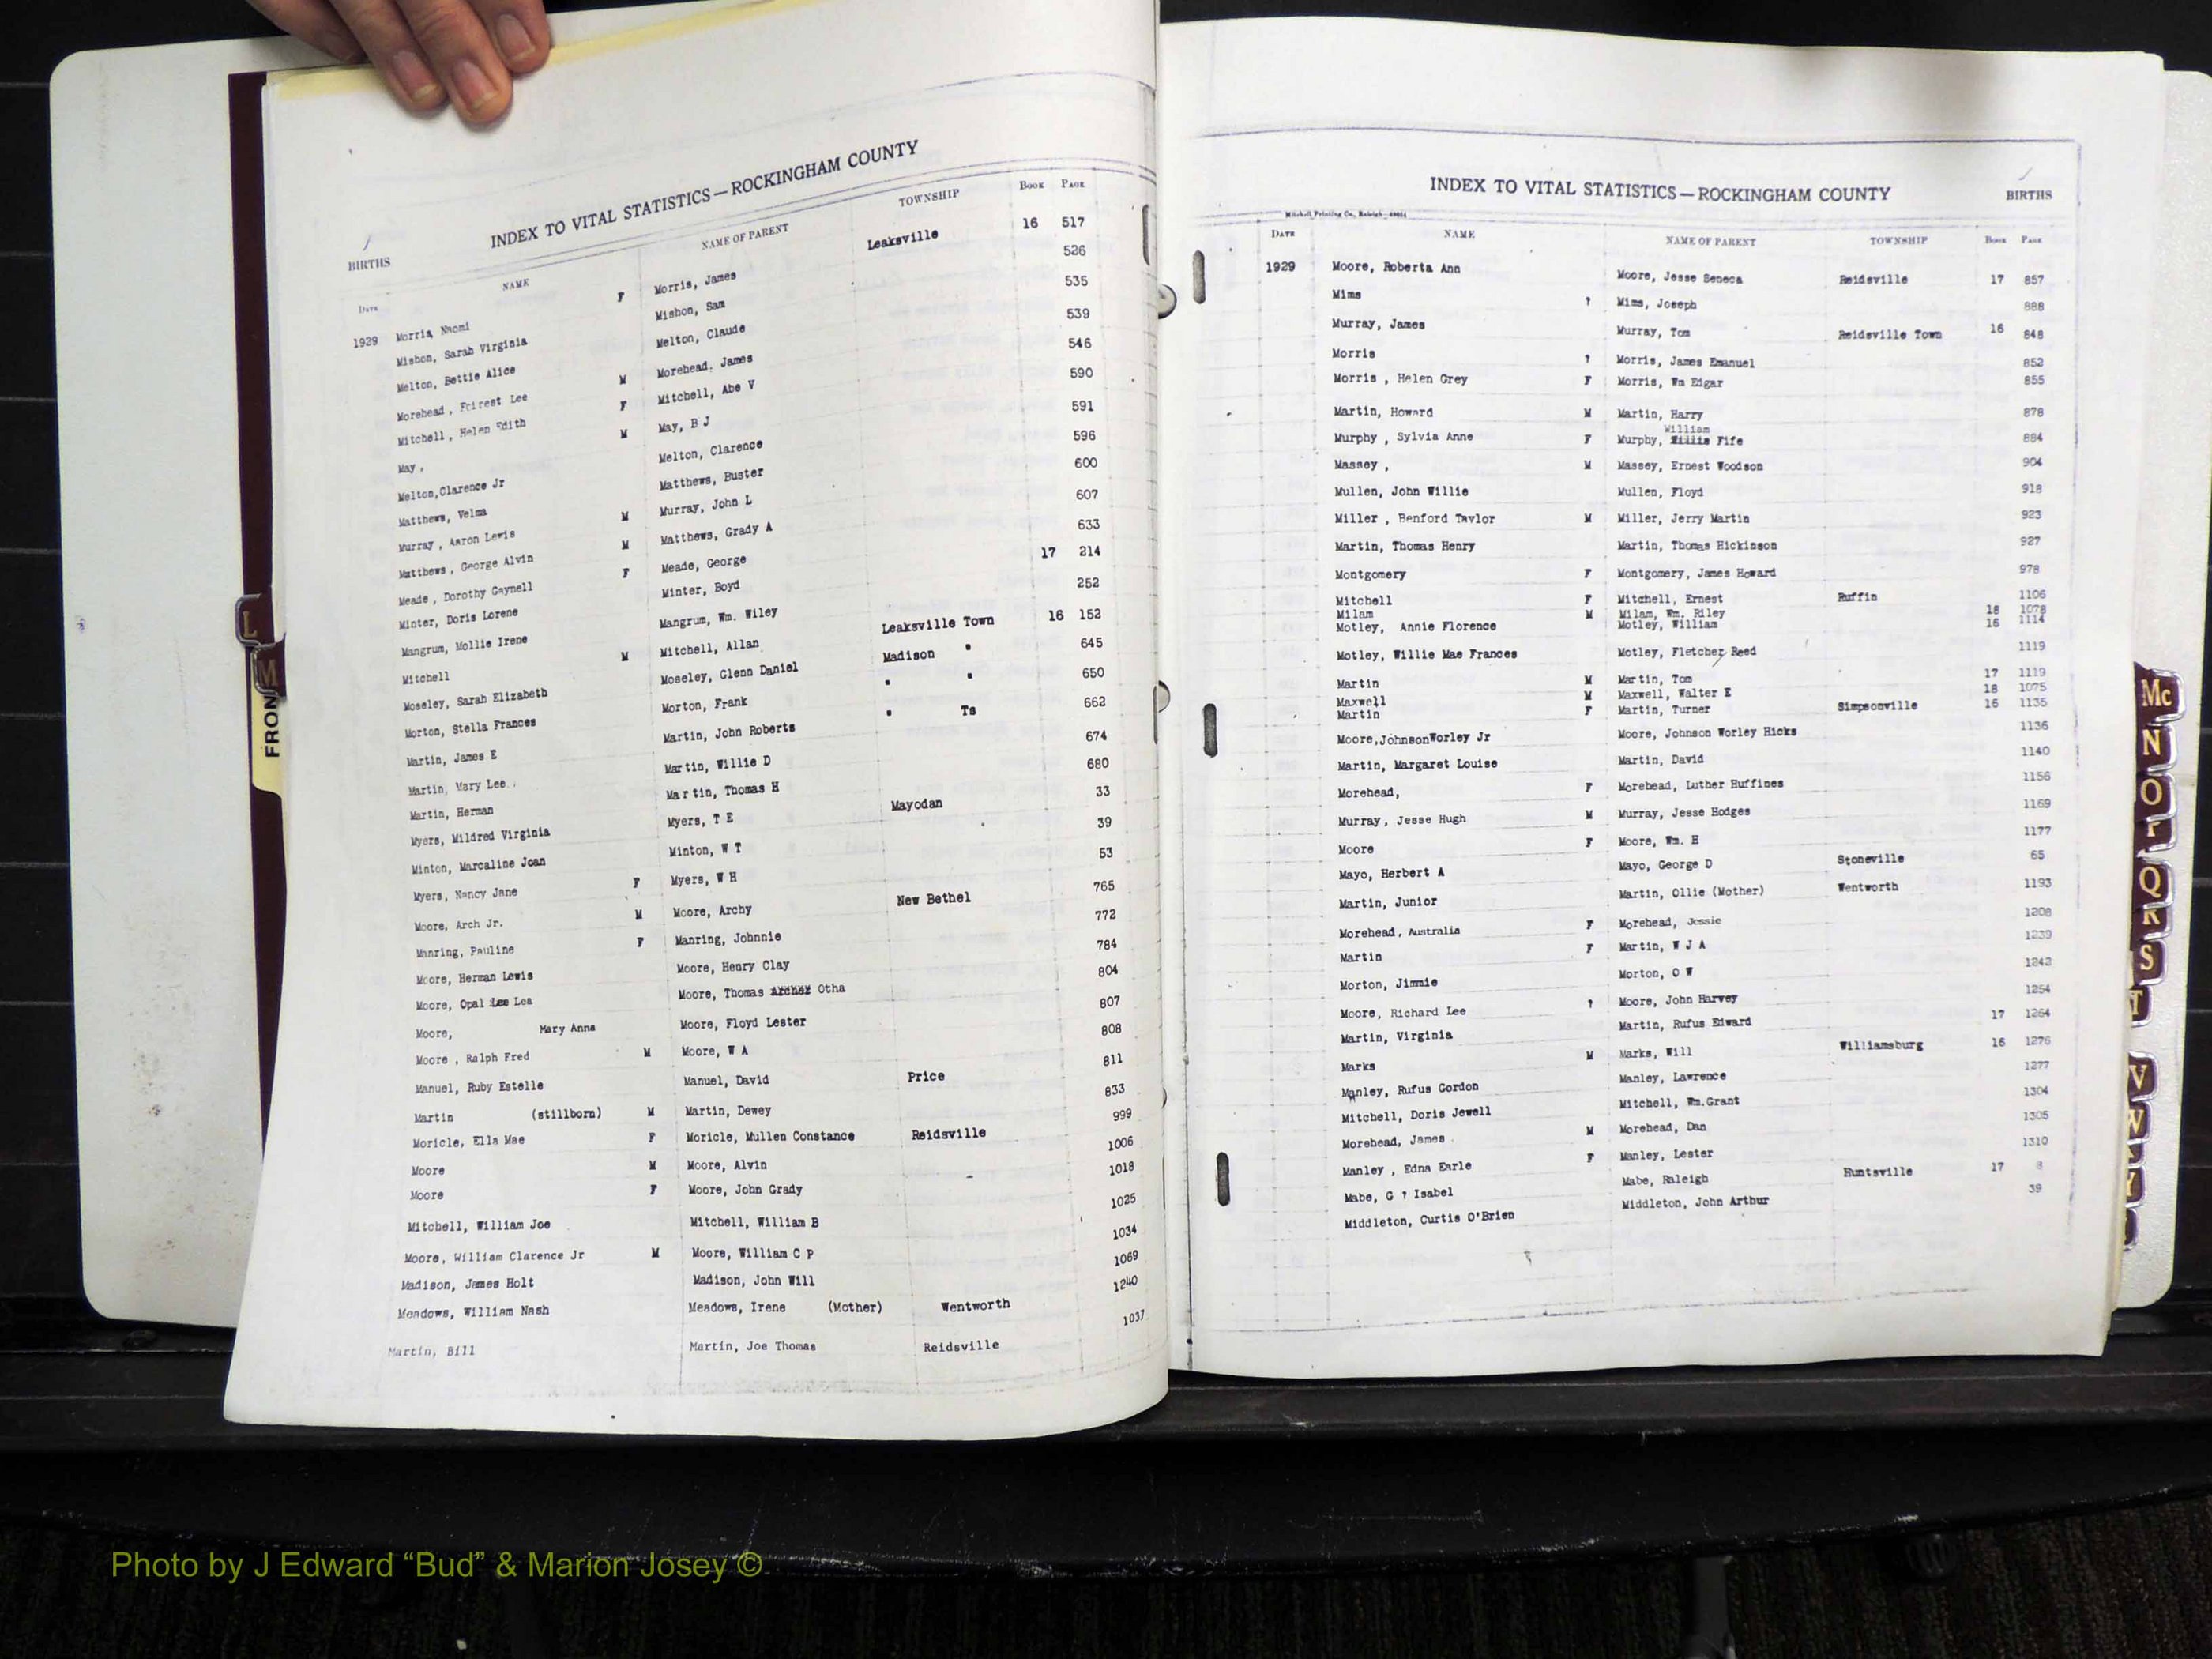 INDEX TO VITAL STATISTICS—ROCKINGHAM COUNTY
BIRTHS
DATE NAME NAME OF PARENT TOWNSHIP BOOK PAGE
1929 Morris, Naomi F Morris, James Leaksville 16 517
Mishon, Sarah Virginia Mishon, Sam 526
Melton, Bettie Alice Melton, Claude 535
Morehead, Forrest Lee M Morehead, James 539
Mitchell, Helen Edith F Mitchell, Abe V 546
May, M May, B J 590
Melton, Clarence Jr Melton, Clarence 591
Matthews, Velma Matthews, Buster 596
Murray, Aaron Lewis M Murray, John L 600
Matthews, George Alvin M Matthews, Grady A 607
Meade, Dorothy Gaynell F Meade, George 633
Minter, Doris Lorene Minter, Boyd 17 214
Mangrum, Mollie Irene Mangrum, Wm. Wiley 252
Mitchell M Mitchell, Allan Leaksville Town 16 152
Moseley, Sarah Elizabeth Moseley, Glenn Daniel Madison " 645
Morton, Stella Frances Morton, Frank " " 650
Martin, James E Martin, John Roberts " Ts 662
Martin, Mary Lee Martin, Willie D 674
Martin, Herman Martin, Thomas H 680
Myers, Mildred Virginia Myers, T E Mayodan 33
Minton, Marcaline Joan Minton, W T 39
Myers, Nancy Jane F Myers, W H 53
Moore, Arch Jr. M Moore, Archy New Bethel 765
Manring, Pauline F Manring, Johnnie 772
Moore, Herman Lewis Moore, Henry Clay 784
Moore, Opal Lee Lea Moore, Thomas Archer Otha 804
Moore, Mary Anna Moore, Floyd Lester 807
Moore, Ralph Fred M Moore, W A 808
Manuel, Ruby Estelle Manuel, David Price 811
Martin (stillborn) M Martin, Dewey 833
Moricle, Ella Mae F Moricle, Mullen Constance Reidsville 999
Moore M Moore, Alvin 1006
Moore F Moore, John Grady 1018
Mitchell, William Joe Mitchell, William B 1025
Moore, William Clarence Jr M Moore, William C P 1034
Madison, James Holt Madison, John Will 1069
Meadows, William Nash Meadows, Irene (Mother) Wentworth 1240
Martin, Bill Martin, Joe Thomas Reidsville 1037
INDEX TO VITAL STATISTICS—ROCKINGHAM COUNTY
BIRTHS
Mitchell Printing Co., Raleigh
DATE NAME NAME OF PARENT TOWNSHIP BOOK PAGE
1929 Moore, Roberta Ann Moore, Jesse Seneca Reidsville 17 857
Mims ? Mims, Joseph 888
Murray, James Murray, Tom Reidsville Town 16 848
Morris ? Morris, James Emanuel 852
Morris, Helen Grey F Morris, Wm Edgar 855
Martin, Howard M Martin, Harry 878
William
Murphy, Sylvia Anne F Murphy, Willis Fife 884
Massey, M Massey, Ernest Woodson 904
Mullen, John Willie Mullen, Floyd 918
Miller, Benford Taylor M Miller, Jerry Martin 923
Martin, Thomas Henry Martin, Thomas Hickinson 927
Montgomery F Montgomery, James Howard 978
Mitchell F Mitchell, Ernest Ruffin 1106
Milam M Milam, Wm. Riley 18 1078
Motley, Annie Florence Motley, William 16 1114
Motley, Willie Mae Frances Motley, Fletcher Reed 1119
Martin M Martin, Tom 17 1119
Maxwell M Maxwell, Walter E 18 1075
Martin F Martin, Turner Simpsonville 16 1135
Moore, Johnson Worley Jr Moore, Johnson Worley Hicks 1136
Martin, Margaret Louise Martin, David 1140
Morehead, F Morehead, Luther Huffines 1156
Murray, Jesse Hugh M Murray, Jesse Hodges 1169
Moore F Moore, Wm. H 1177
Mayo, Herbert A Mayo, George D Stoneville 65
Martin, Junior Martin, Ollie (Mother) Wentworth 1193
Morehead, Australia F Morehead, Jessie 1208
Martin F Martin, W J A 1239
Morton, Jimmie Morton, O W 1242
Moore, Richard Lee ? Moore, John Harvey 1254
Martin, Virginia Martin, Rufus Edward 17 1264
Marks M Marks, Will Williamsburg 16 1276
Manley, Rufus Gordon Manley, Lawrence 1277
Mitchell, Doris Jewell Mitchell, Wm.Grant 1304
Morehead, James M Morehead, Dan 1305
Manley, Edna Earle F Manley, Lester 1310
Mabe, G ? Isabel Mabe, Raleigh Huntsville 17 8
Middleton, Curtis O'Brien Middleton, John Arthur 39
L
M
FRON
Mc
N
O
Q
R
S
T
V
W
Y
Photo by J Edward “Bud” & Marion Josey ©